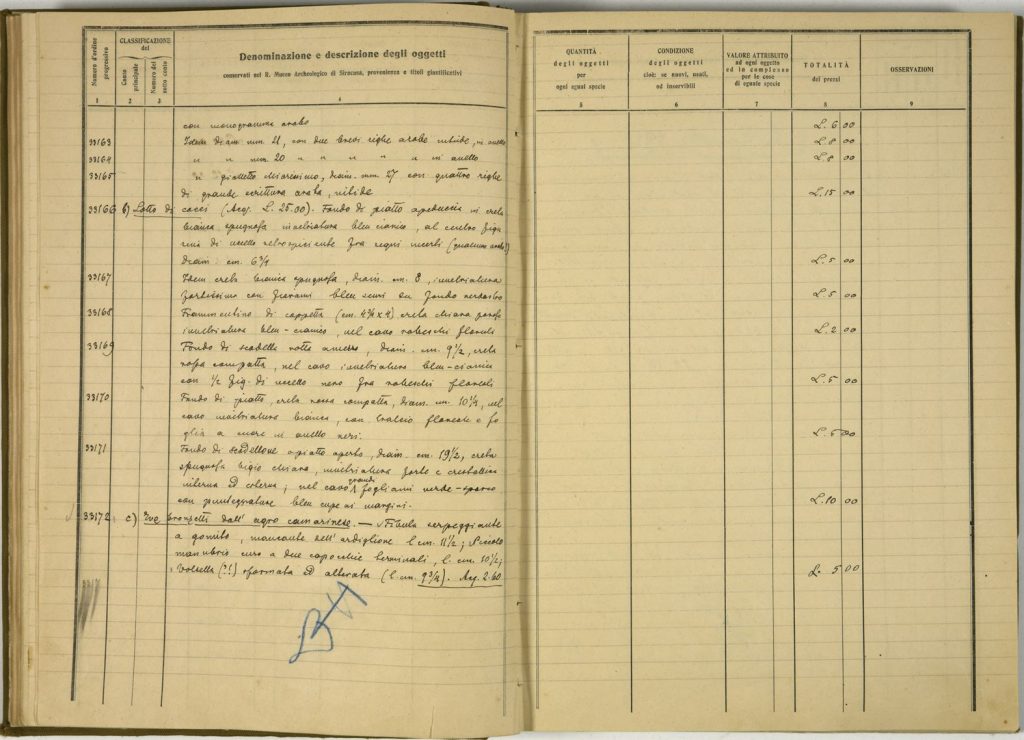 Numero d'ordine progressivo
CLASSIFICAZIONE
del
Conto principale
Numero del sotto conto
Denominazione e descrizione degli oggetti
conservati nel R. Museo Archeologico di Siracusa, provenienza e titoli giustificativi
QUANTITÀ
degli oggetti
per
ogni egual specie
CONDIZIONE
degli oggetti
cioè: se nuovi, usati,
od inservibili
VALORE ATTRIBUITO
ad ogni oggetto
ed in complesso
per le cose
di eguale specie
TOTALITÀ
dei prezzi
OSSERVAZIONI
1 2 3 4 5 6 7 8 9
con monogramma arabo L. 6 00
33163 Idem diam. mm. 21, con due brevi righe arabe nitide, in anello L. 8 00
33164 " " mm. 20 " " " " " in anello L. 8 00
33165 " gialletto chiarissimo, diam. mm. 27 con quattro righe
di grande scrittura araba, nitide L. 15 00
33166 b) Lotto di cocci (Acq. L. 25.00). Fondo di piatto apoduccia in creta
bianca spugnosa invetriatura bleu cianico, al centro figu
rina di uccello retrospiciente fra segni incerti
diam. cm. 6 3/4 L. 5 00
33167 Idem creta bianca spugnosa, diam. cm. 8, invetriatura
fortissima con fiorami bleu scuri su fondo verdastro L. 5 00
33168 Frammentino di coppetta (cm. 4 3/4 x 4) creta chiara
invetriatura bleu-cianico, nel cavo rabeschi floreali L. 2 00
33169 Fondo di scodella rotta a mezzo, diam. cm. 9 1/2, creta
rossa compatta, nel cavo invetriatura bleu-cianica
con 1/2 fig. di uccello nero fra rabeschi floreali L. 5 00
33170 Fondo di piatto, creta rossa compatta, diam. cm. 10 1/2, nel
cavo invetriatura bianca, con tralcio floreale e fo
glia a cuore in anello neri. L. 5 00
33171 Fondo di scodellone o piatto aperto, diam. cm. 19 1/2, creta
spugnosa bigio chiara, invetriatura forte e cristallina
interna ed esterna; nel cavo grandi fogliami verde-sporco
con punteggiature bleu cupe ai margini. L. 10 00
33172 c) Tre bronzetti dall'agro camarinese. — Fibula serpeggiante
a gomito, mancante dell'ardiglione l. cm. 11 1/2; Piccolo
manubrio curvo a due capocchie terminali, l. cm. 10 1/2;
Volsella (?!) sformata ed alterata (l. cm. 9 3/4). Acq. 2.60 L. 5 00